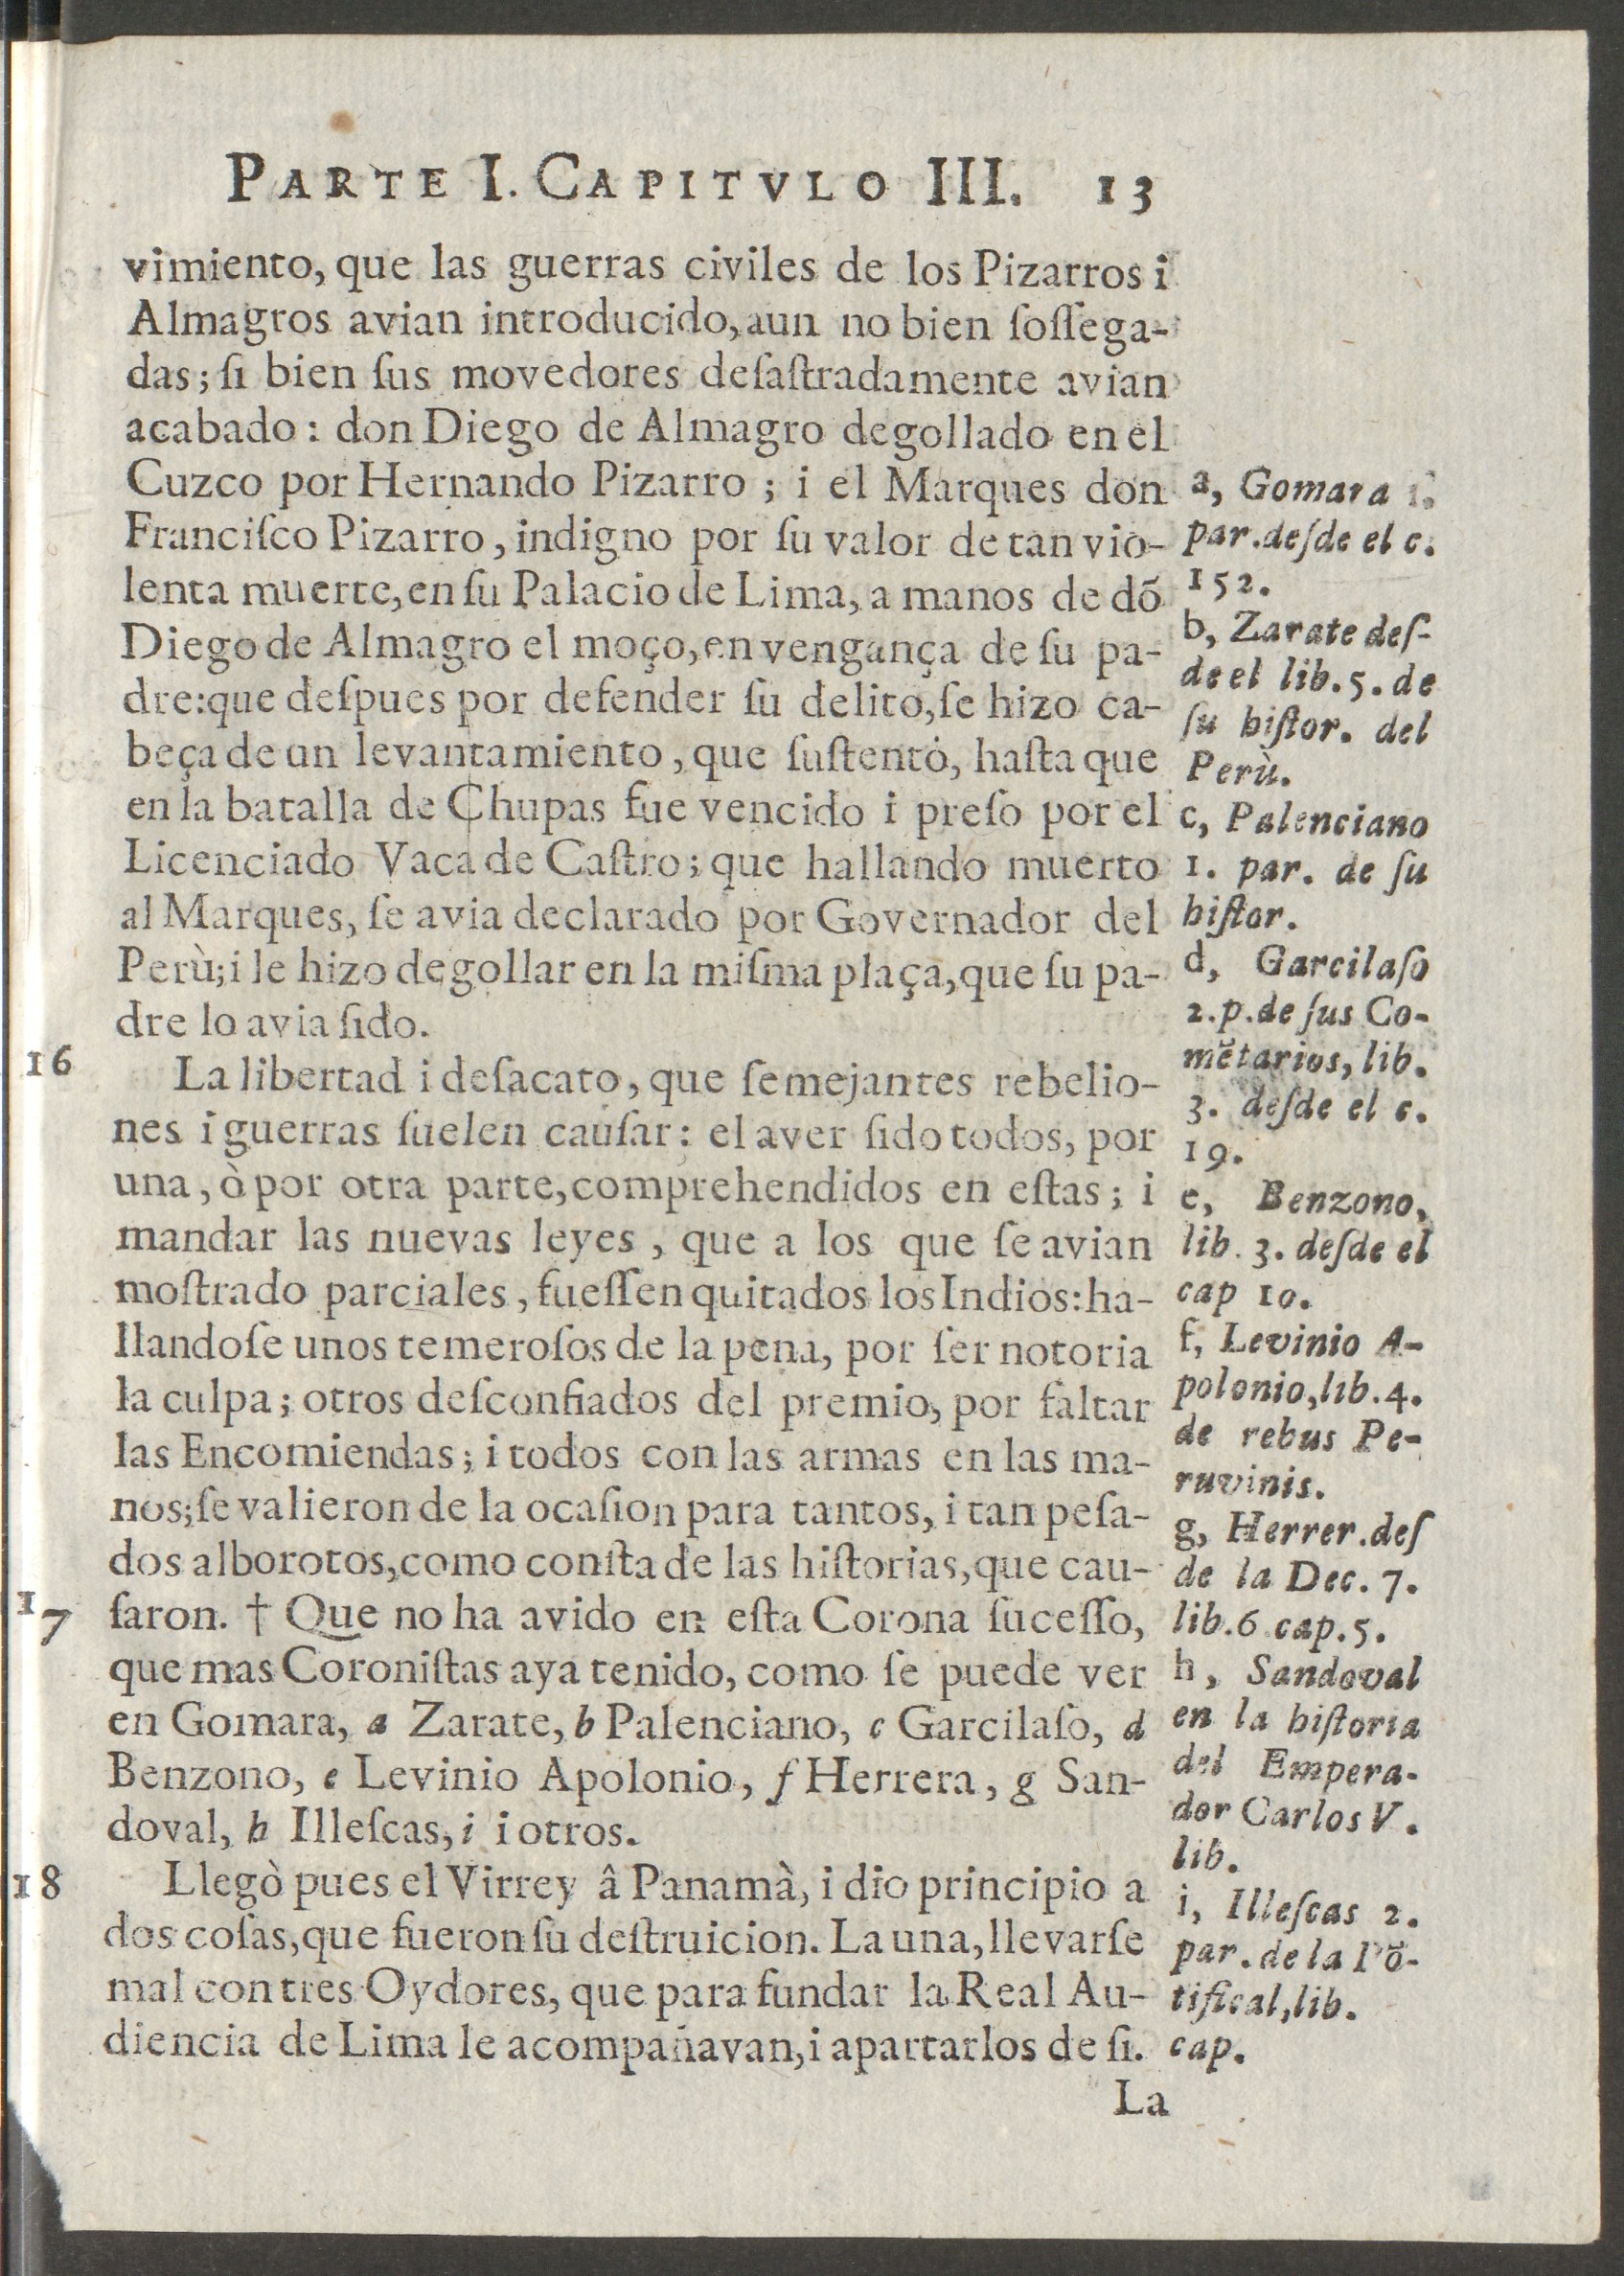 PARTE I. CAPITVLO III. 13
vimiento, que las guerras civiles de los Pizarros i
Almagros avian introducido, aun no bien ſoſſega-
das; ſi bien ſus movedores deſaſtradamente avian
acabado: don Diego de Almagro degollado en el
Cuzco por Hernando Pizarro; i el Marques don
Franciſco Pizarro, indigno por ſu valor de tan vio-
lenta muerte, en ſu Palacio de Lima, a manos de dõ
Diego de Almagro el moço, en vengança de ſu pa-
dre: que deſpues por defender ſu delito, ſe hizo ca-
beça de un levantamiento, que ſuſtentò, haſta que
en la batalla de Chupas fue vencido i preſo por el
Licenciado Vaca de Caſtro; que hallando muerto
al Marques, ſe avia declarado por Governador del
Perù; i le hizo degollar en la miſma plaça, que ſu pa-
dre lo avia ſido.
16
La libertad i deſacato, que ſemejantes rebelio-
nes i guerras ſuelen cauſar: el aver ſido todos, por
una, ò por otra parte, comprehendidos en eſtas; i
mandar las nuevas leyes, que a los que ſe avian
moſtrado parciales, fueſſen quitados los Indios: ha-
llandoſe unos temeroſos de la pena, por ſer notoria
la culpa; otros deſconfiados del premio, por faltar
las Encomiendas; i todos con las armas en las ma-
nos; ſe valieron de la ocaſion para tantos, i tan peſa-
dos alborotos, como conſta de las hiſtorias, que cau-
17
ſaron. † Que no ha avido en eſta Corona ſuceſſo,
que mas Coroniſtas aya tenido, como ſe puede ver
en Gomara, a Zarate, b Palenciano, c Garcilaſo, d
Benzono, e Levinio Apolonio, f Herrera, g San-
doval, h Illeſcas, i i otros.
18
Llegò pues el Virrey â Panamà, i dio principio a
dos coſas, que fueron ſu deſtruicion. La una, llevarſe
mal con tres Oydores, que para fundar la Real Au-
diencia de Lima le acompañavan, i apartarlos de ſi.
La
a, Gomara 1.
par. deſde el c.
152.
b, Zarate deſ-
de el lib. 5. de
ſu hiſtor. del
Perù.
c, Palenciano
1. par. de ſu
hiſtor.
d, Garcilaſo
2. p. de ſus Co-
mẽtarios, lib.
3. deſde el c.
19.
e, Benzono,
lib. 3. deſde el
cap 10.
f, Levinio A-
polonio, lib. 4.
de rebus Pe-
ruvinis.
g, Herrer. deſ
de la Dec. 7.
lib. 6 cap. 5.
h, Sandoval
en la hiſtoria
del Empera-
dor Carlos V.
lib.
i, Illeſcas 2.
par. de la Põ-
tifical, lib.
cap.